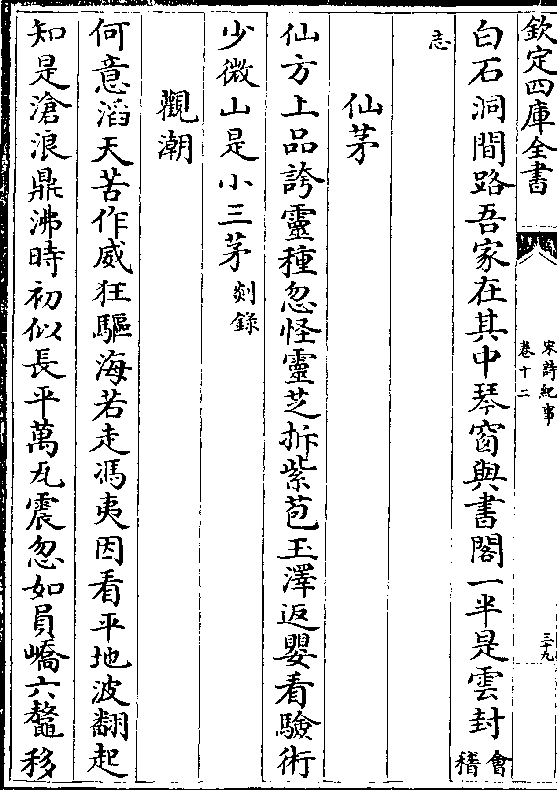 欽定四庫全書
宋詩紀事
卷十二
三十九
白石洞間路吾家在其中琴窗與書閣一半是雲封會稽
志
仙茅
仙方上品誇靈種忽怪靈芝拆紫苞玉澤返嬰看驗術
少微山是小三茅剡錄
觀潮
何意滔天苦作威狂驅海若走馮夷因看平地波翻起
知是滄浪鼎沸時初似長平萬瓦震忽如員嶠六鼇移